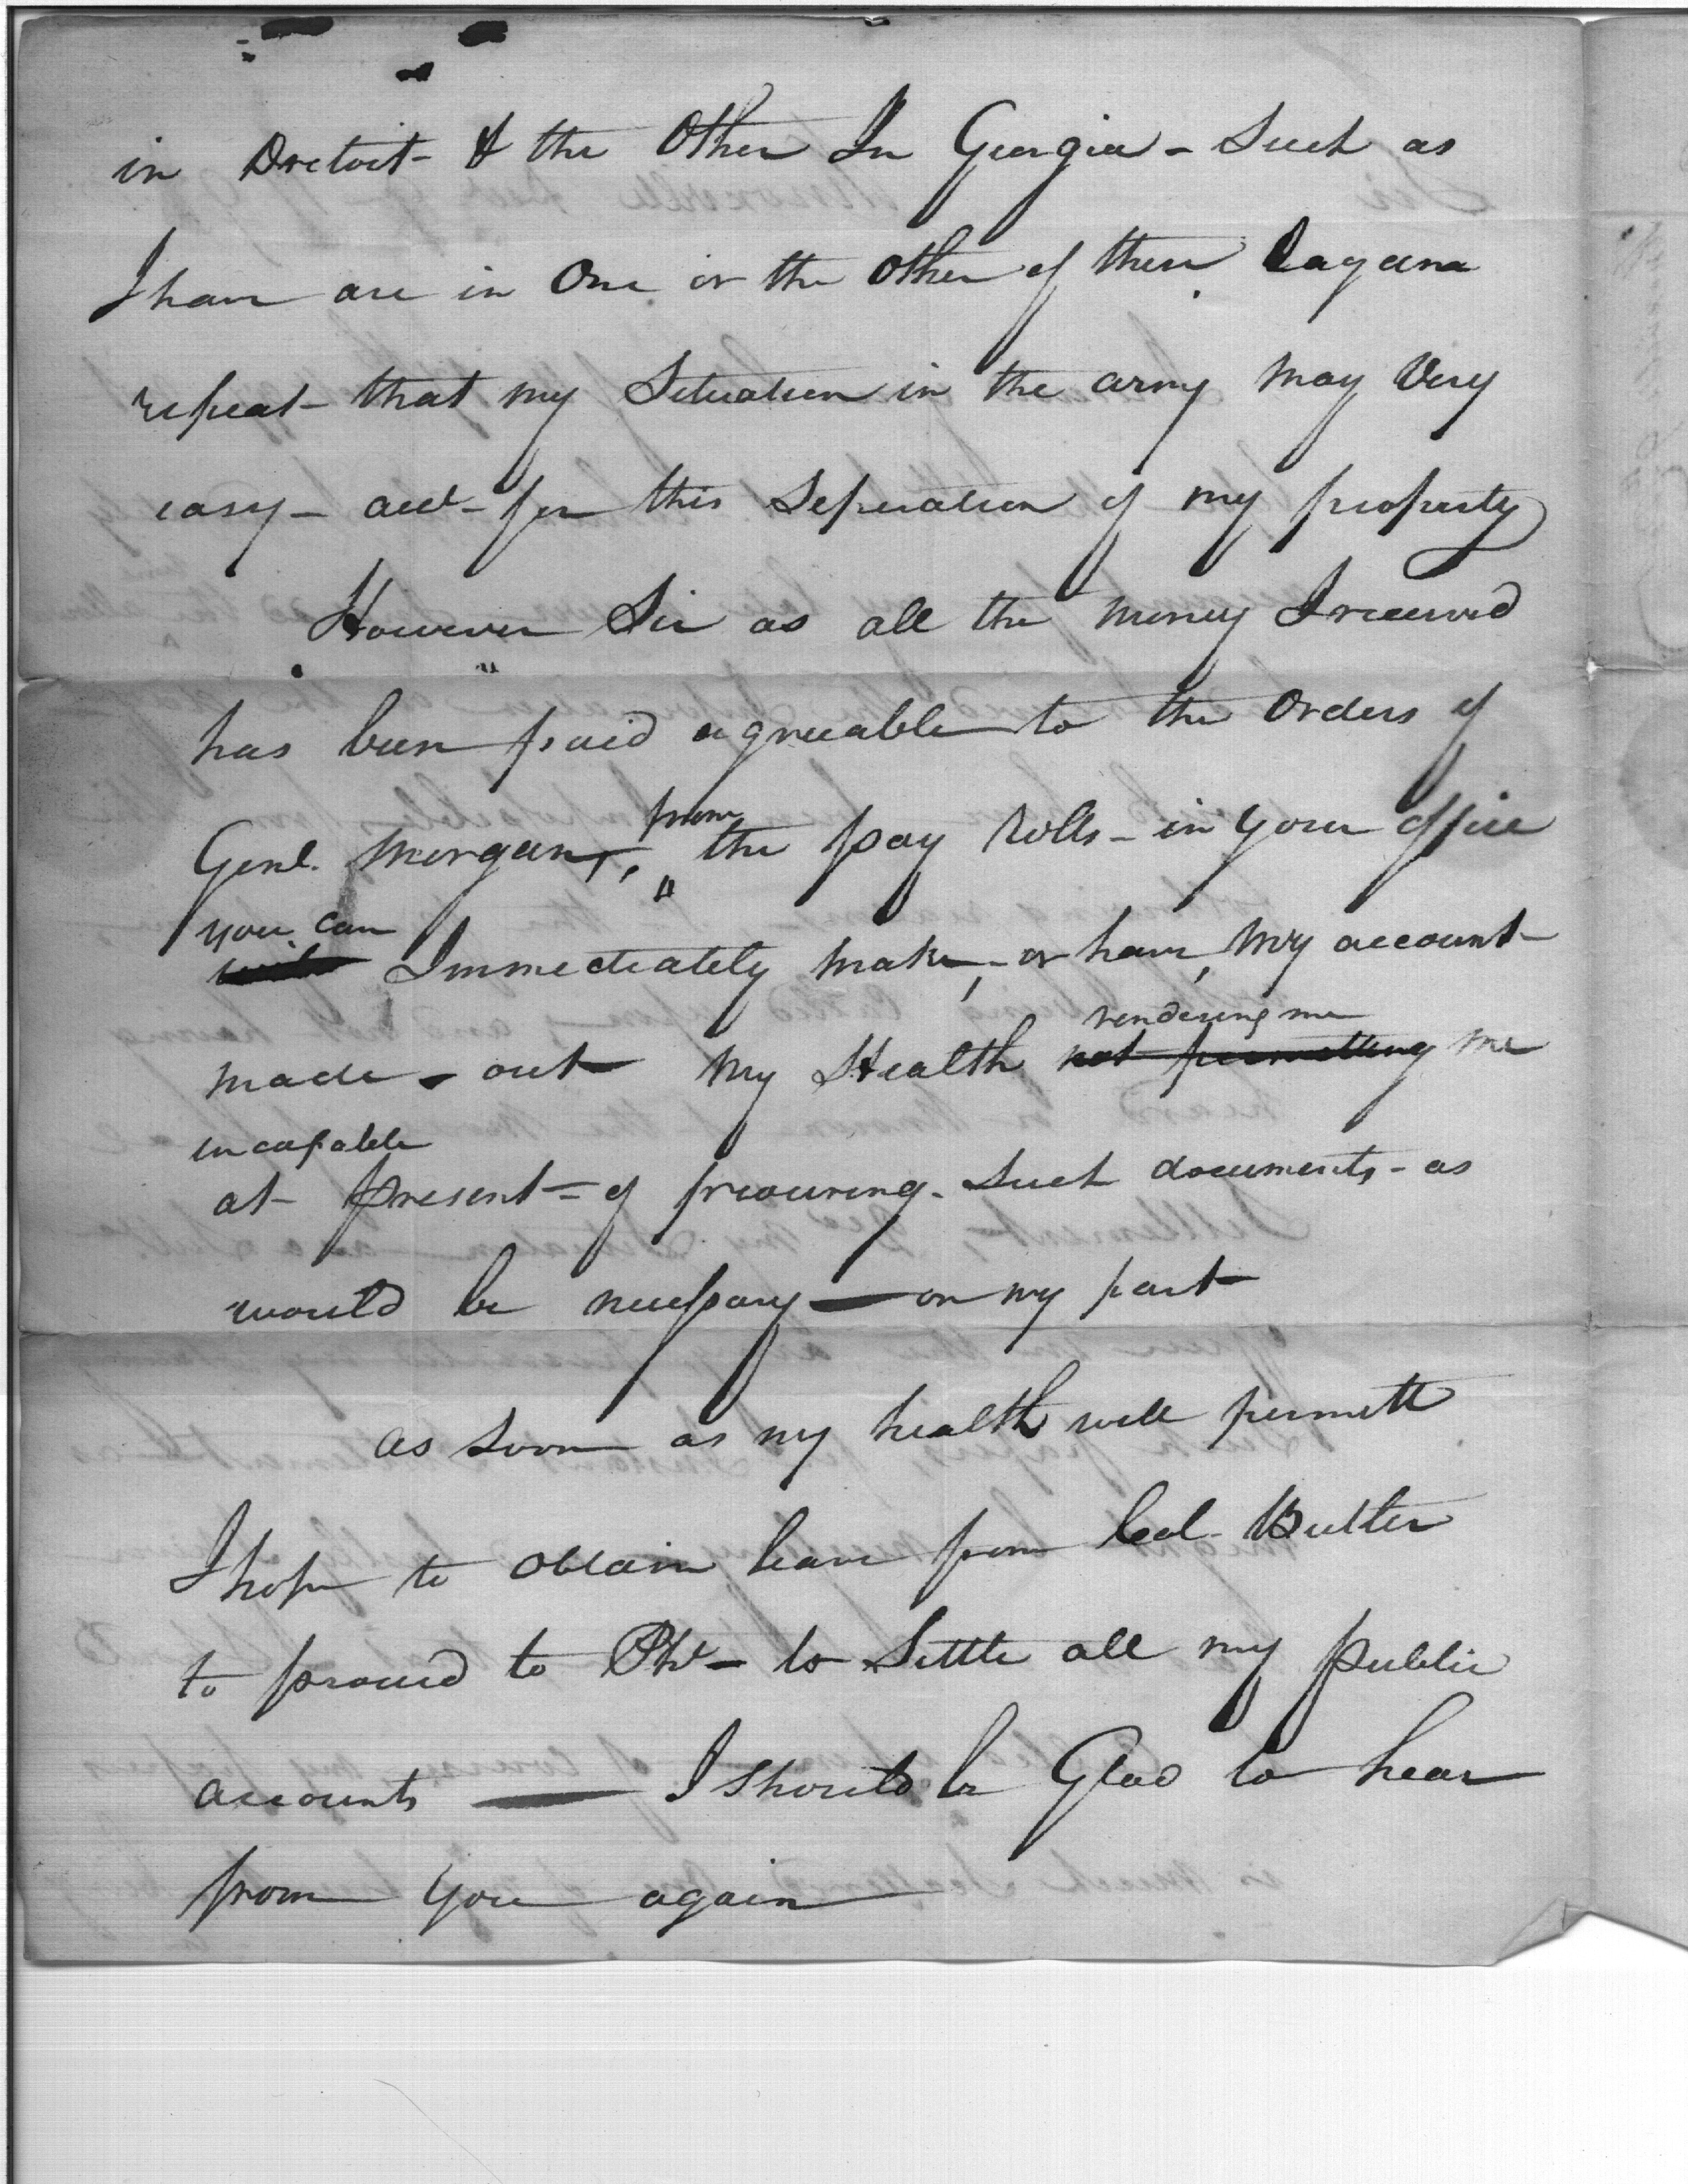 in Dretoit - & the Other In Georgia - Such as
I have are in One or the Other of these I again
repeat - that my Situation in the army may Very
easy - acct - for this Seperation of my property
However Sir as all the money I received
has been paid agreeable to the Orders of
from
Genl. Morgan, the pay Rolls - in your office
you can
Immediately make, - or have, my account -
rendering me
made - out my Health not permitting me
incapable
at present - of procuring - Such documents - as
would be necessary — on my part
as soon as my health will permitt
I hope to obtain leave from Col - Butler
to proceed to Pha - to Settle all my public
accounts — I should be Glad to hear
from you again